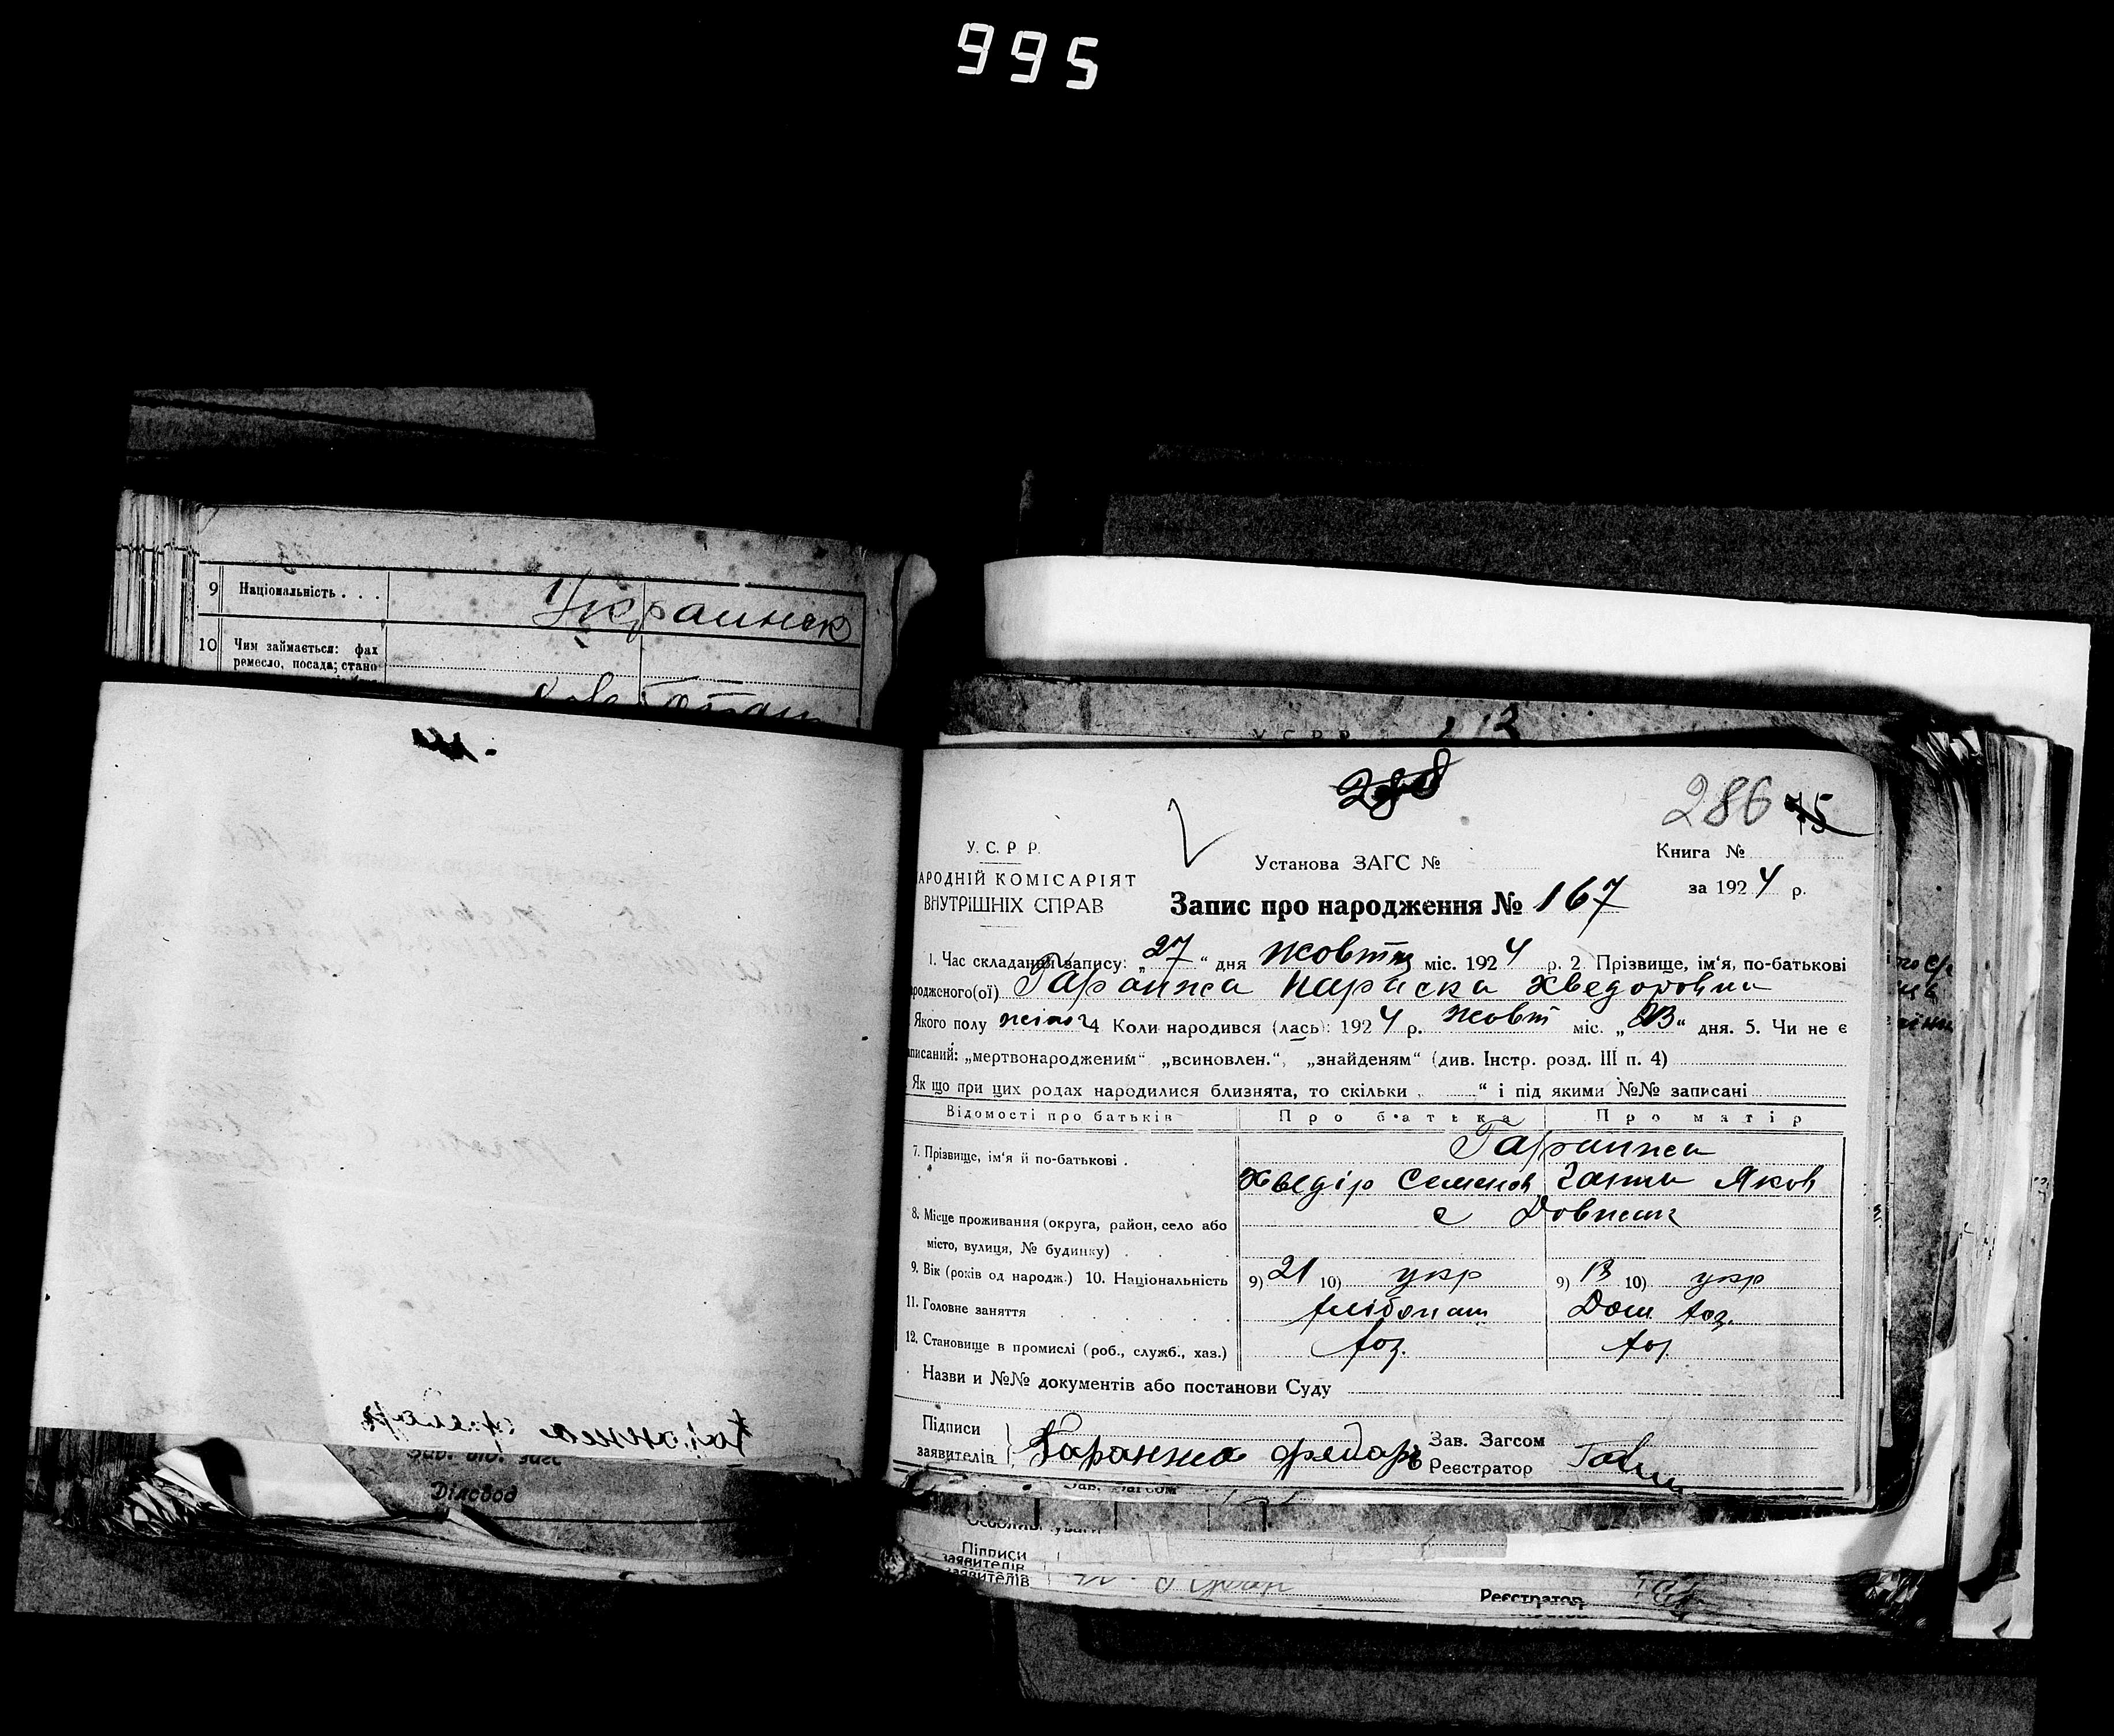 995
9 Національність . . .
Украинск
10 Чим займається: фах
ремесло, посада; стано
Діловод
У. С. Р. Р.
286 45
Книга №
за 1924 р.
У. С. Р. Р.
АРОДНІЙ КОМІСАРІЯТ
ВНУТРІШНІХ СПРАВ
Установа ЗАГС №
Запис про народження № 167
1. Час складання запису: „27“ дня жовтня міс. 1924 р. 2 Прізвище, ім'я, по-батькові
родженого(ої) Гаранжа Параска Хведоровна
Якого полу жіноч 4 Коли народився (лась): 1924 р. жовт міс. „23“ дня. 5. Чи не є
аписаний: „мертвонародженим“ „всиновлен.“, „знайденям“ (див. Інстр. розд. III п. 4)
Як що при цих родах народилися близнята, то скільки “ і під якими №№ записані
Відомості про батьків Про батька Про матір
7. Прізвище, ім'я й по-батькові . Гаранжа
Хведір Семенов Ганна Яков
8. Місце проживання (округа, район, село або с Довжик
місто, вулиця, № будинку) . .
9. Вік (років од народж.) 10. Національність 9) 21 10) укр 9) 18 10) укр
11. Головне заняття хлібопаш Дом хоз.
12. Становище в промислі (роб., служб., хаз.) хоз. хоз
Назви и №№ документів або постанови Суду
Підписи
заявителів Гаранжа федаръ
Зав. Загсом
Реєстратор
Зав. Загсом
Підписи
заявителів
заявителів
Реєстратор